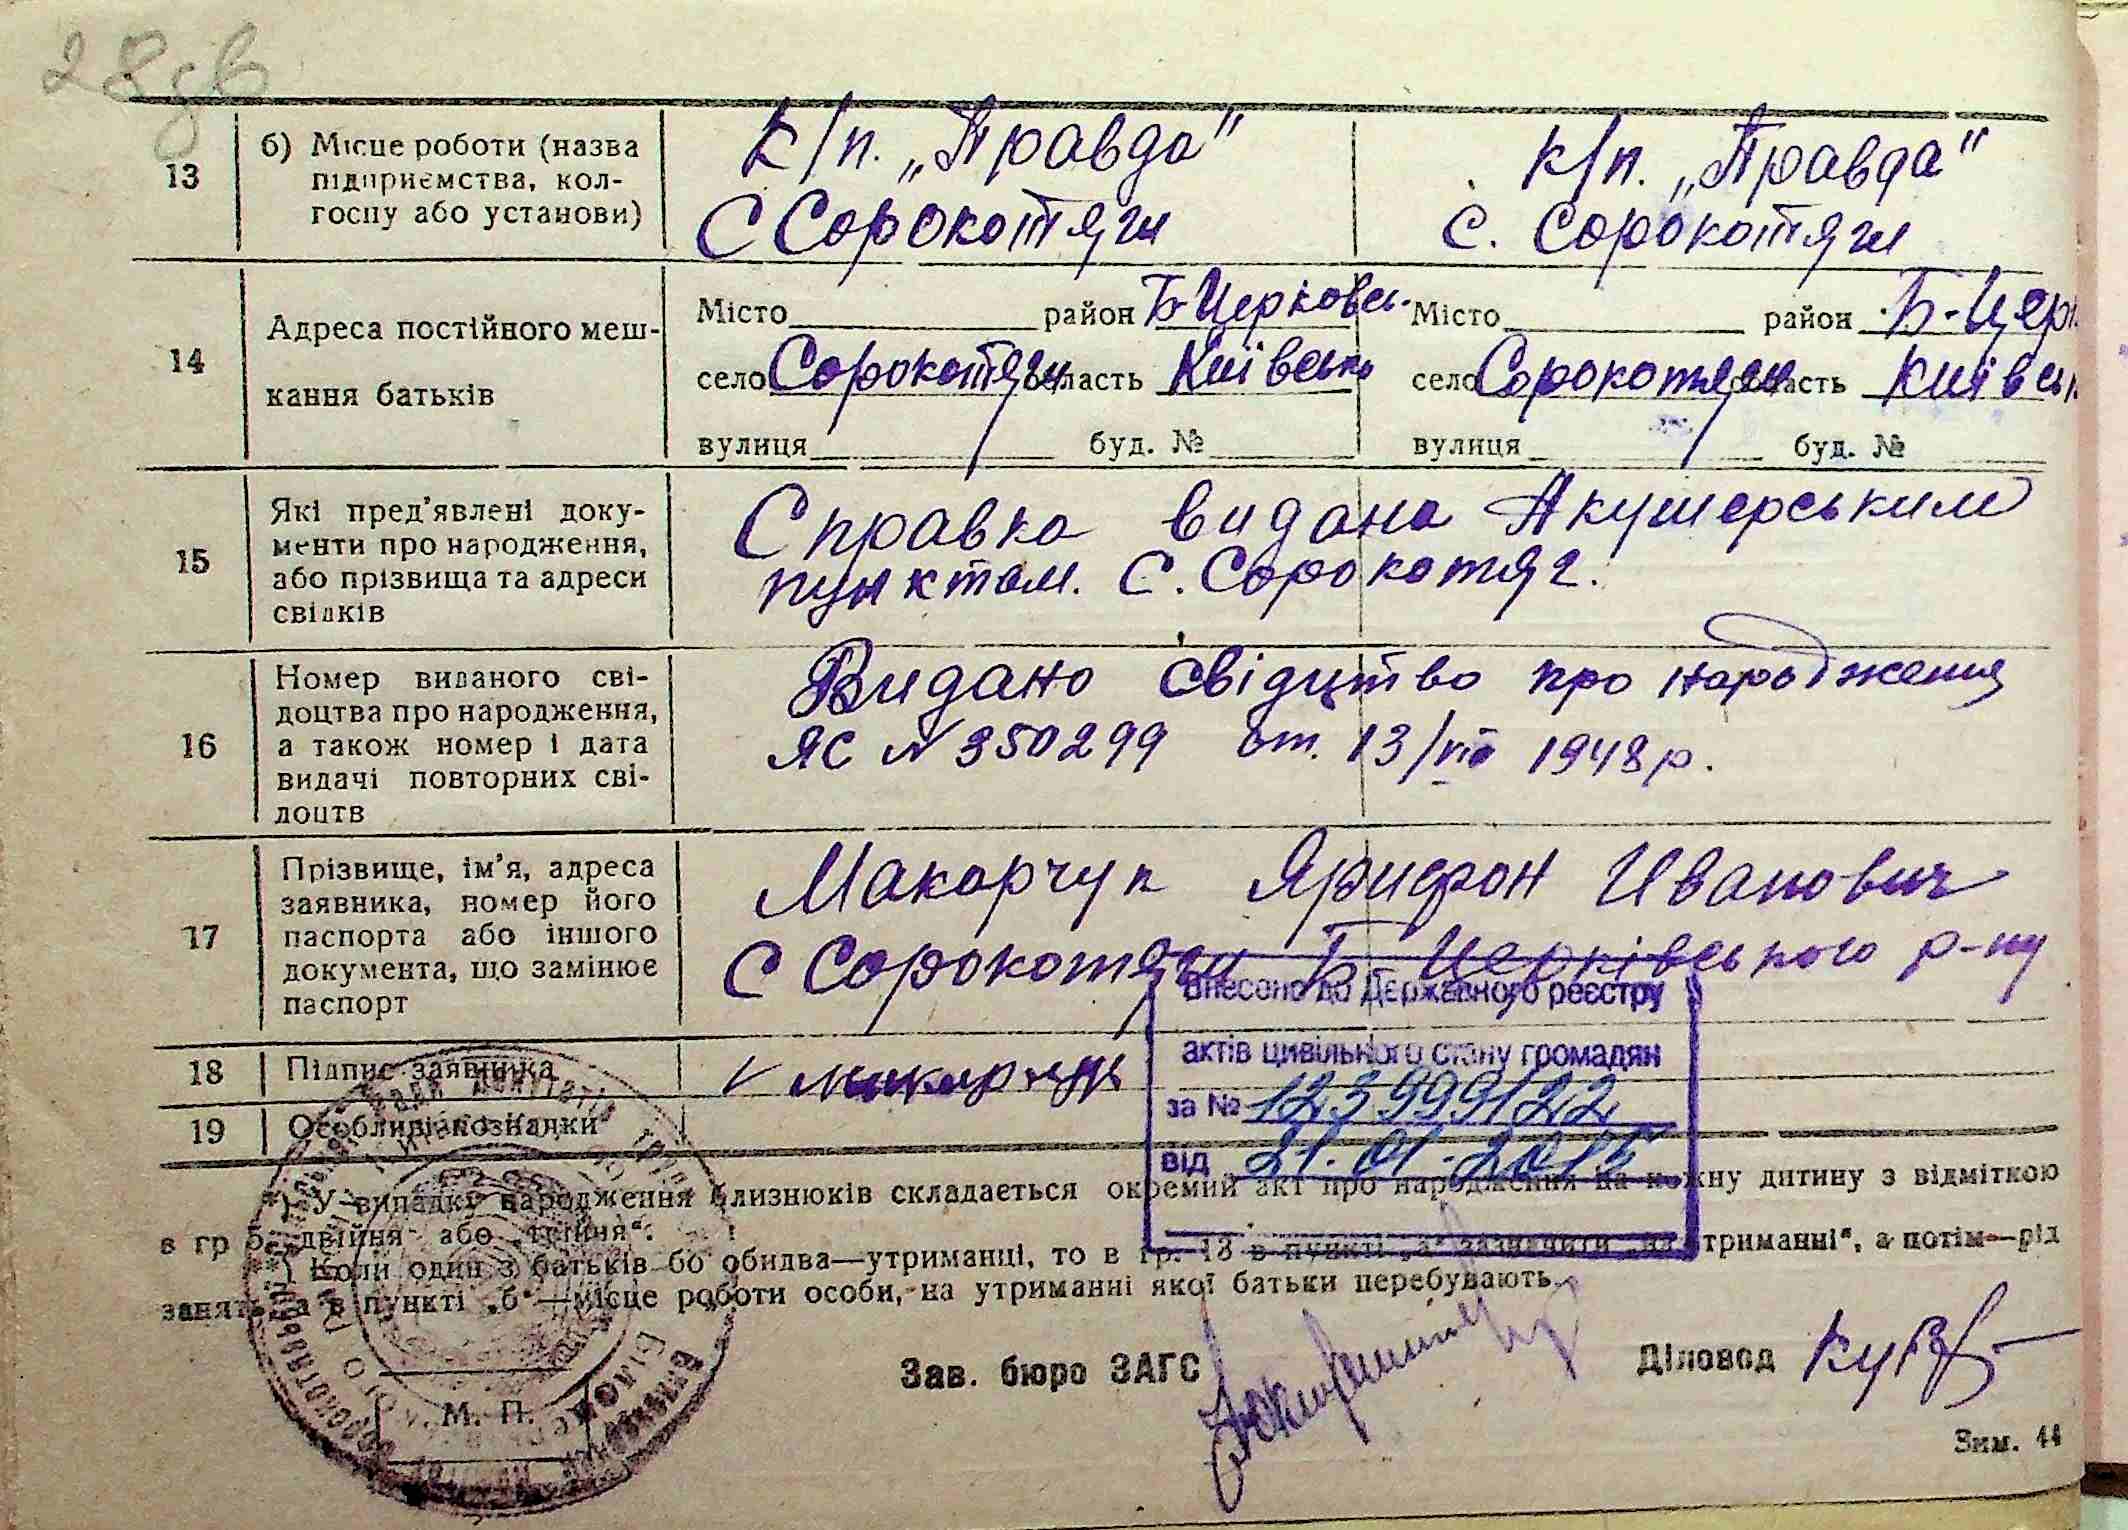 28 зв
13
б) Місце роботи (назва
підприємства, кол-
госпу або установи)
К/п. „Правда"
С Сорокотяги
К/п. „Правда"
С. Сорокотяги
14
Адреса постійного меш-
кання батьків
Місто район Б-Церковсь.
село Сорокотяги область Київсько
вулиця буд. №
Місто район Б-Церк
село Сорокотяги область Київськ
вулиця буд. №
15
Які пред'явлені доку-
менти про народження,
або прізвища та адреси
свідків
Справка видана Акушерським
пунктом. С. Сорокотяг.
16
Номер виданого сві-
доцтва про народження,
а також номер і дата
видачі повторних сві-
доцтв
Видано свідцтво про народження
ЯС N 350299 от. 13/VIII 1948 р.
17
Прізвище, ім'я, адреса
заявника, номер його
паспорта або іншого
документа, що замінює
паспорт
Макарчук Иванович
С Сорокотяги Б Церківського р-ну
18
Підпис заявника
19
Особливі позначки
Внесено до Державного реєстру
актів цивільного стану громадян
за № 123999122
від 21.01.2015
*) У випадку народження близнюків складається окремий акт про народження на кожну дитину з відміткою
в гр 5 „двійня" або „трійня".
Коли один з батьків бо обидва—утриманці, то в гр. 13 в пункті „а" зазначити „на утриманні", а потім—рід
занять, а в пункті „б"—місце роботи особи, на утриманні якої батьки перебувають.
М. П.
Зав. бюро ЗАГС
Діловод
Зим. 44